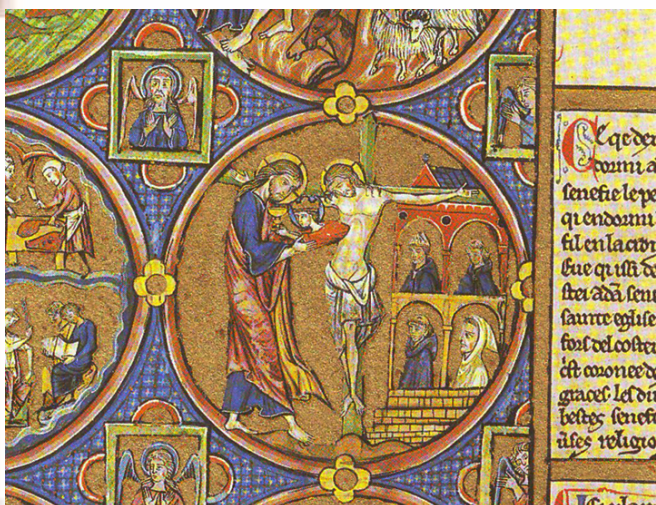 Ce qe der
dormi a
senefie le pe
qi endormi
fil en la croi
Eue qi issi de
stei adã sene
sainte eglise
fors del coste
est coronee de
graces. Les di
bestes senefi
uses religio